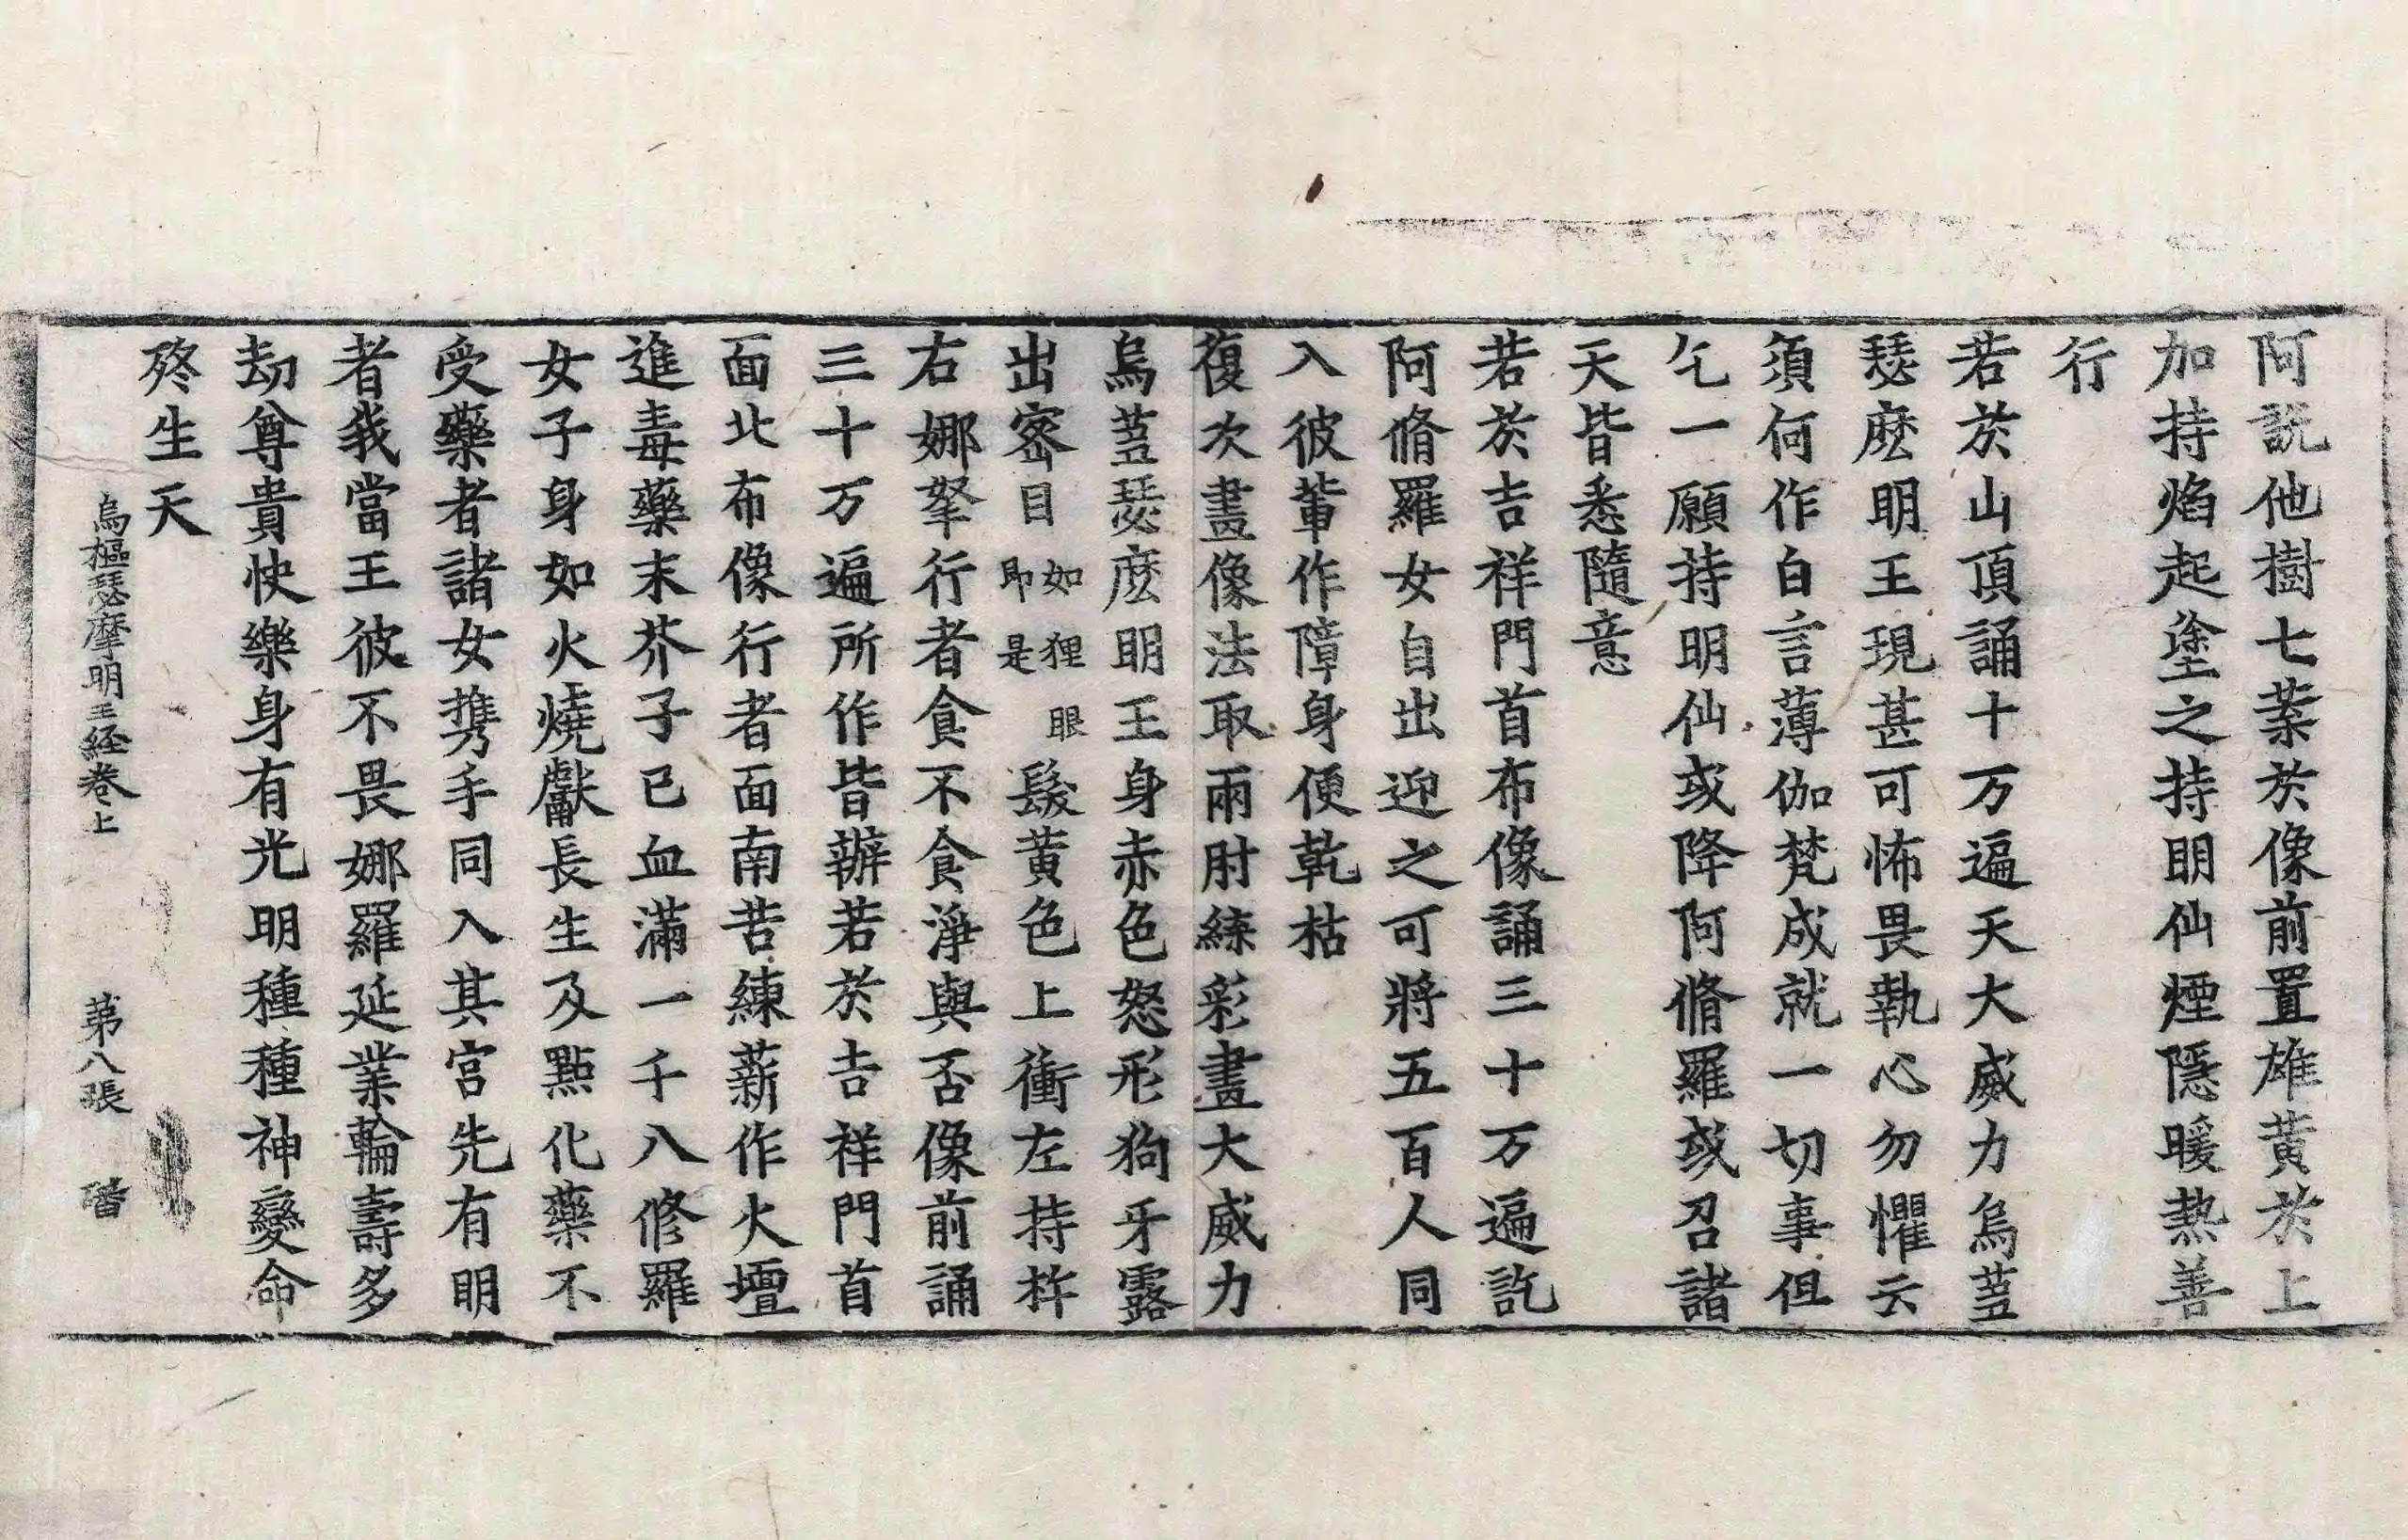 阿說他樹七葉於像前置雄黃於上
加持焰起塗之持明仙煙隱暖熱善
行
若於山頂誦十万遍天大威力烏蒭
瑟麼明王現甚可怖畏執心勿懼云
須何作白言薄伽梵成就一切事但
乞一願持明仙或降阿脩羅或召諸
天皆悉隨意
若於吉祥門首布像誦三十万遍訖
阿脩羅女自出迎之可將五百人同
入彼輩作障身便乾枯
復次畫像法取兩肘練彩畫大威力
烏蒭瑟麽明王身赤色怒形狗牙露
出密目如狸眼即是髮黃色上衝左持杵
右娜拏行者食不食淨與否像前誦
三十万遍所作皆辦若於吉祥門首
面北布像行者面南苦練薪作火壇
進毒藥末芥子已血滿一千八修羅
女子身如火燒獻長生及點化藥不
受藥者諸女攜手同入其宮先有明
者我當王彼不畏娜羅延業輪壽多
劫尊貴快樂身有光明種種神變命
終生天
烏樞瑟摩明王経卷上　第八張　碏